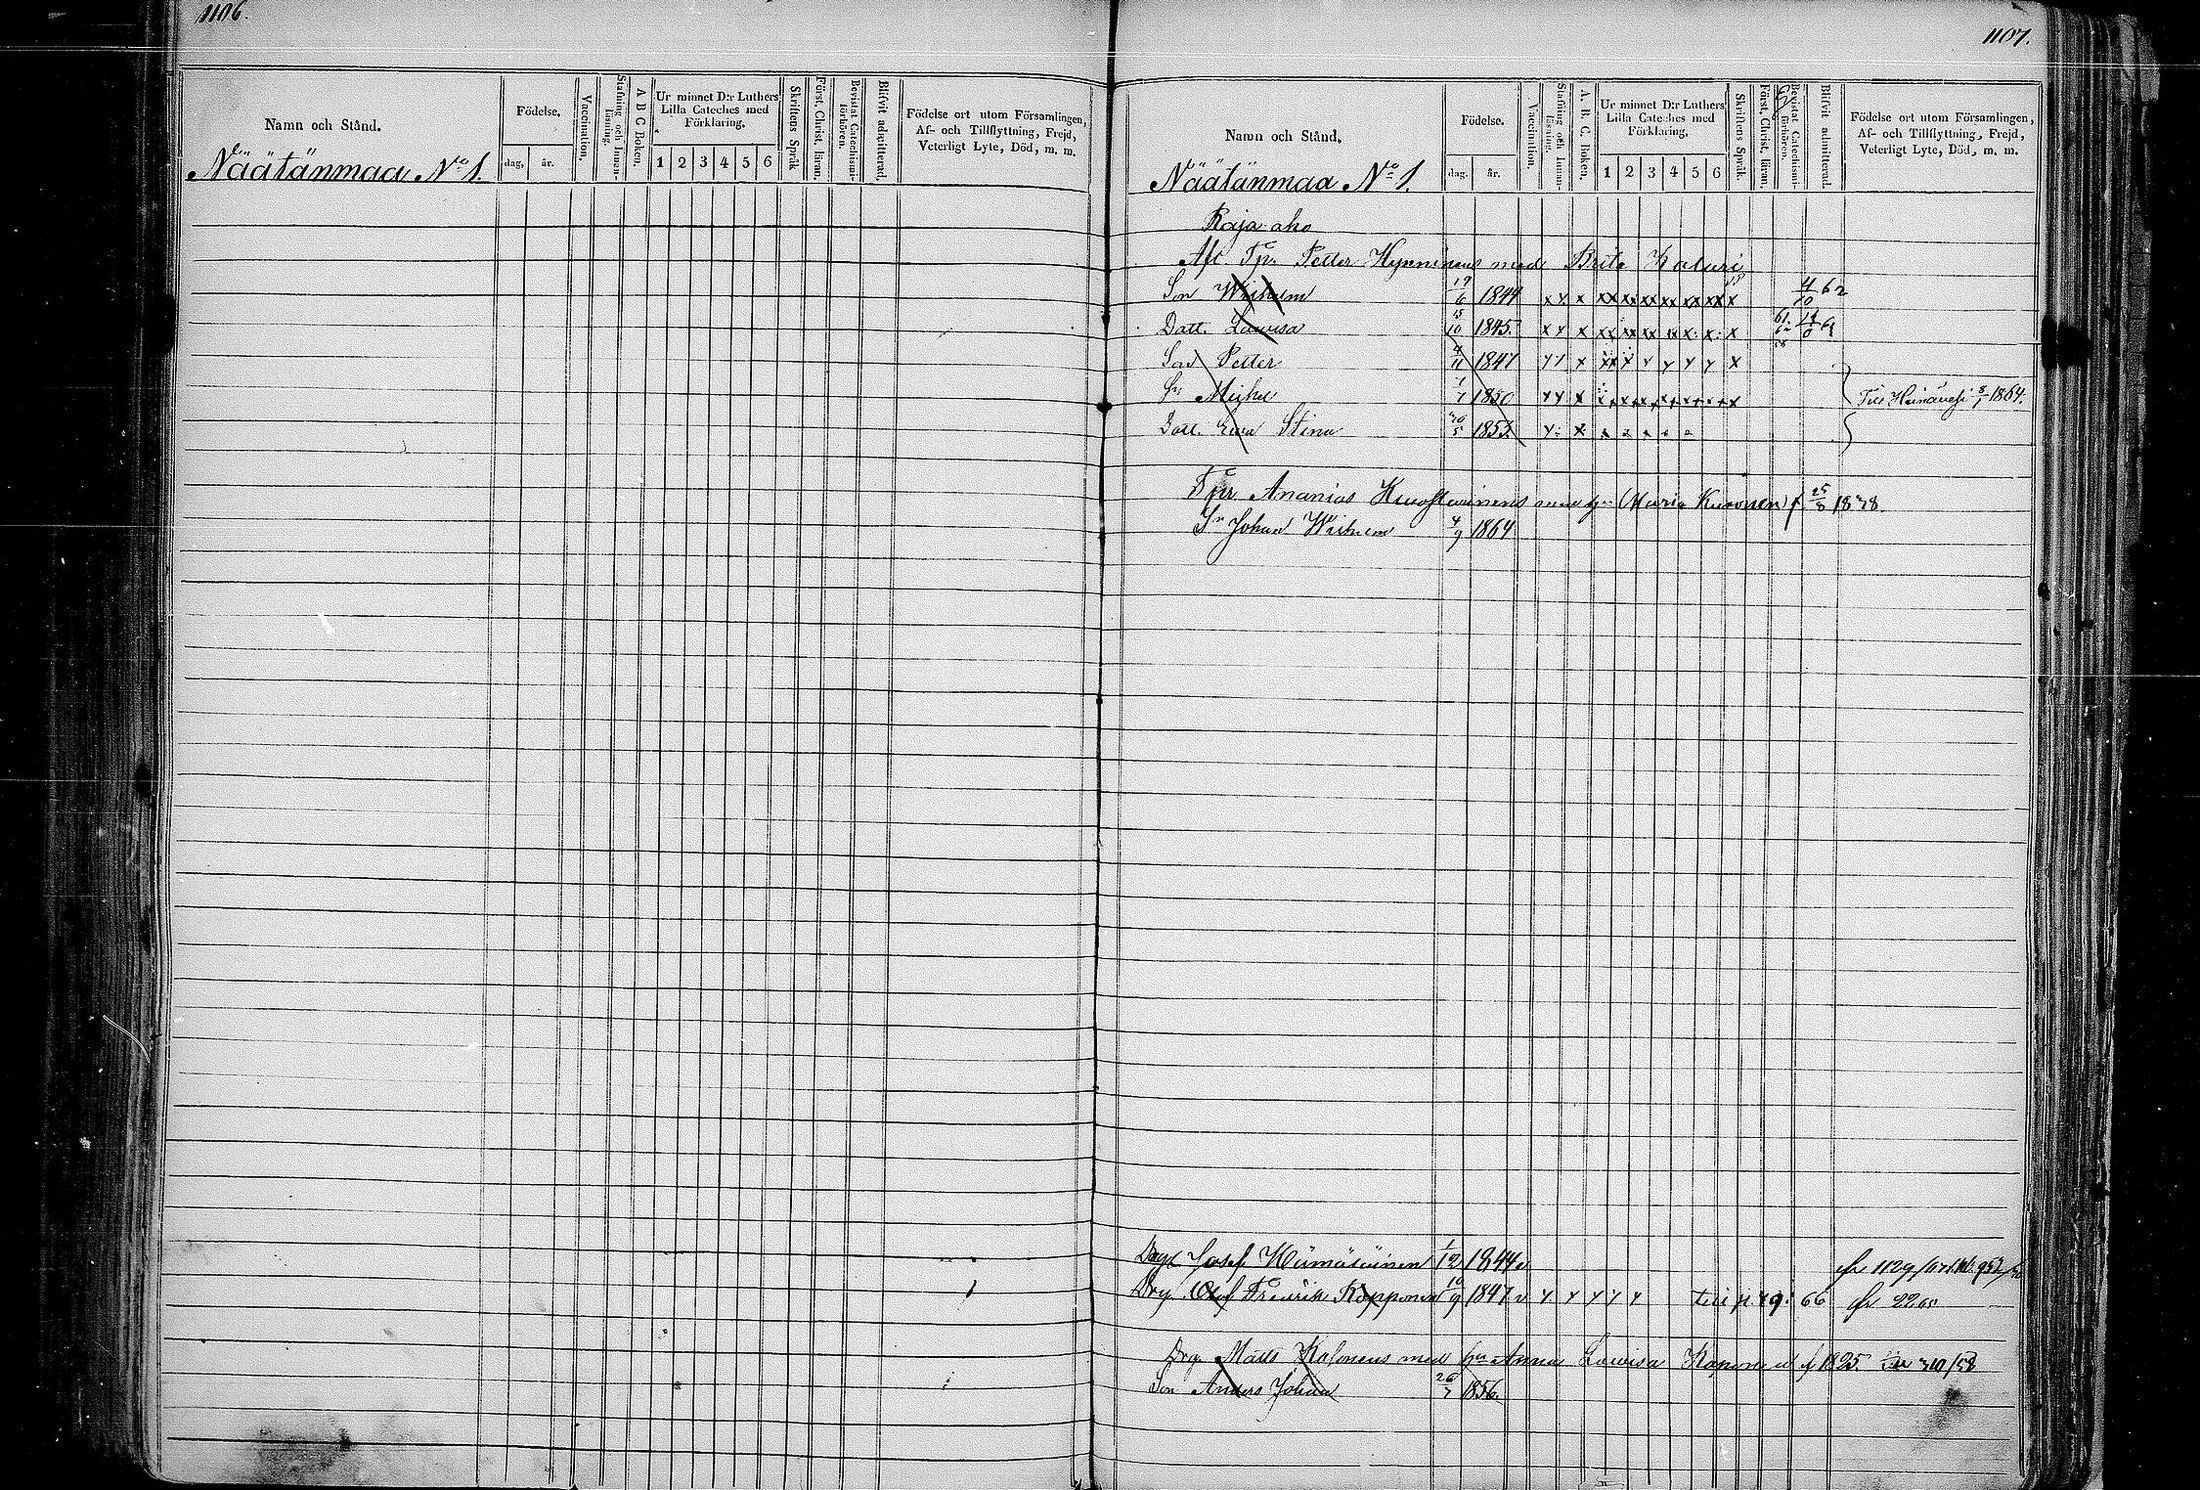 1106.
Namn och Stånd.
Födelse.
dag, år.
Vaccination,
Stafning och Innan-läsning.
A B C Boken.
Ur minnet D:r Luthers Lilla Cateches med Förklaring.
1 2 3 4 5 6
Skriftens Språk
Först. Christ. läran.
Bevistat Catechismi-förhören.
Blifvit admitterad.
Födelse ort utom Församlingen, Af- och Tillflyttning, Frejd, Veterligt Lyte, Död, m. m.
Näätänmaa No 1.
1107.
Namn och Stånd.
Födelse.
dag. år.
Vaccination.
Stafning och Innan-läsning.
A. B. C. Boken.
Ur minnet D:r Luthers Lilla Cateches med Förklaring.
1 2 3 4 5 6
Skriftens Språk.
Först. Christ. läran.
Bevistat Catechismi-förhören.
Blifvit admitterad.
Födelse ort utom Församlingen, Af- och Tillflyttning, Frejd, Veterligt Lyte, Död, m. m.
Näätänmaa No 1.
Raja aho
Afl. Tp. Petter Hynninens med Brita
Son Wilhelm 19/6 1844 x x x xx xx xx xx xx xx x 4/10 62
Dott. Lawisa 15/10 1845
Son Petter 4/11 1847
Sn Michel 1/7 1850 Till Heinävesi 8/1 1864.
Dott. Ewa Stina 30/5 1853
Tpr Ananias med hu Maria Kuronen f. 25/8 1838.
Sn Johan Wilhelm 4/9 1864
Josef Hämäläinen 1/12 1844
Drg. Olof Fredrik Kopponen 10/9 1847 66 fr 22
Drg. Matts med hu Anna Lawisa f 1825. 310/58
Son Anders Johan 26/7 1856.